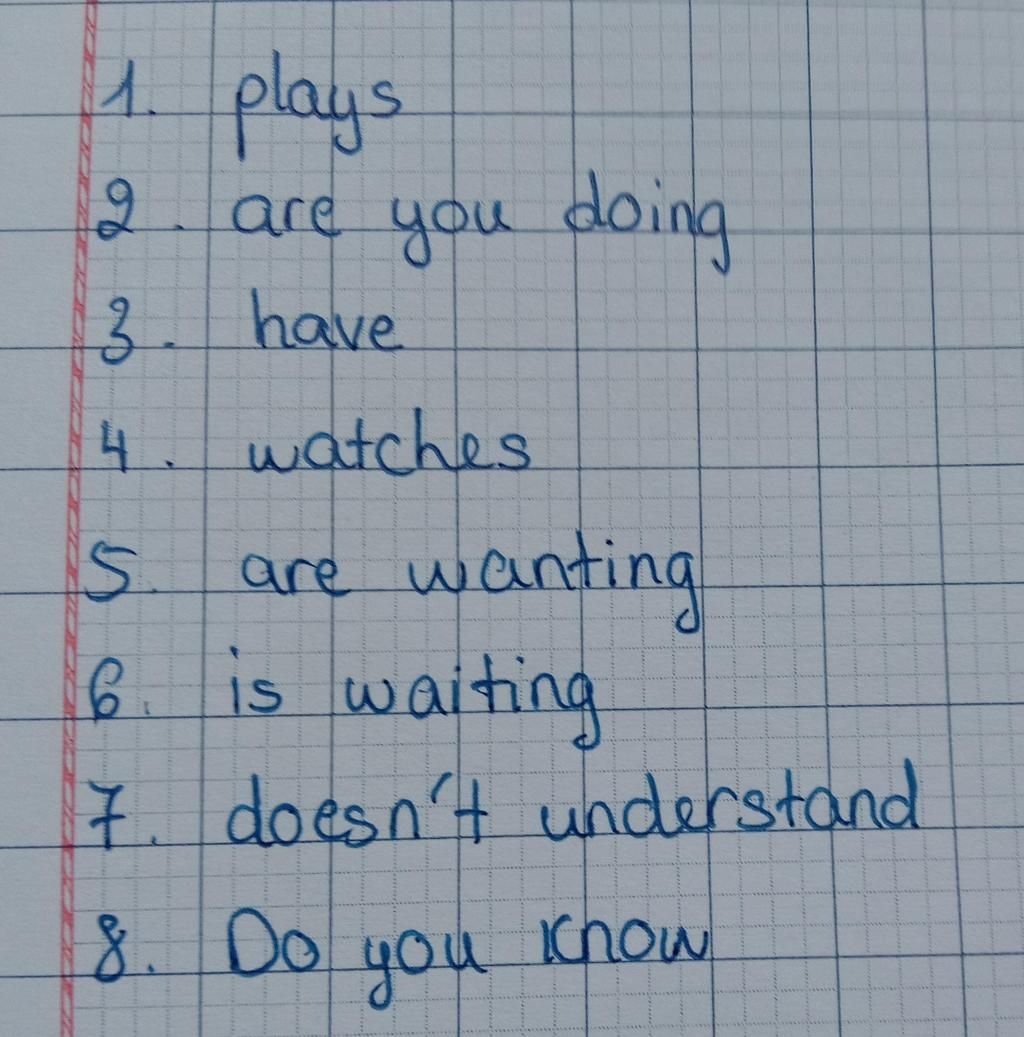 1. plays
2. are you doing
3. have
4. watches
5. are wanting
6. is waiting
7. doesn't understand
8. Do you know